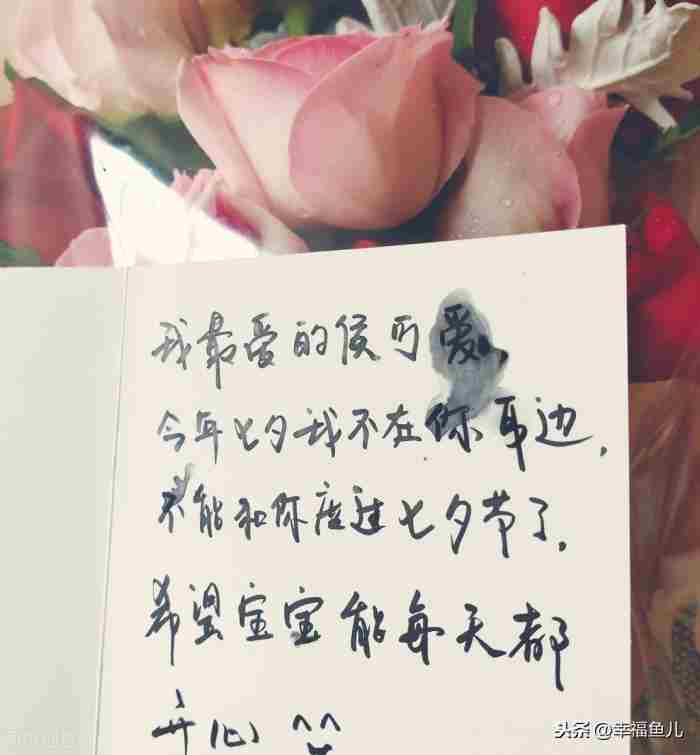 我最爱的侯可爱、
今年七夕我不在你耳边，
不能和你度过七夕节了。
希望宝宝能每天都
开心 ^^
头条@幸福鱼儿